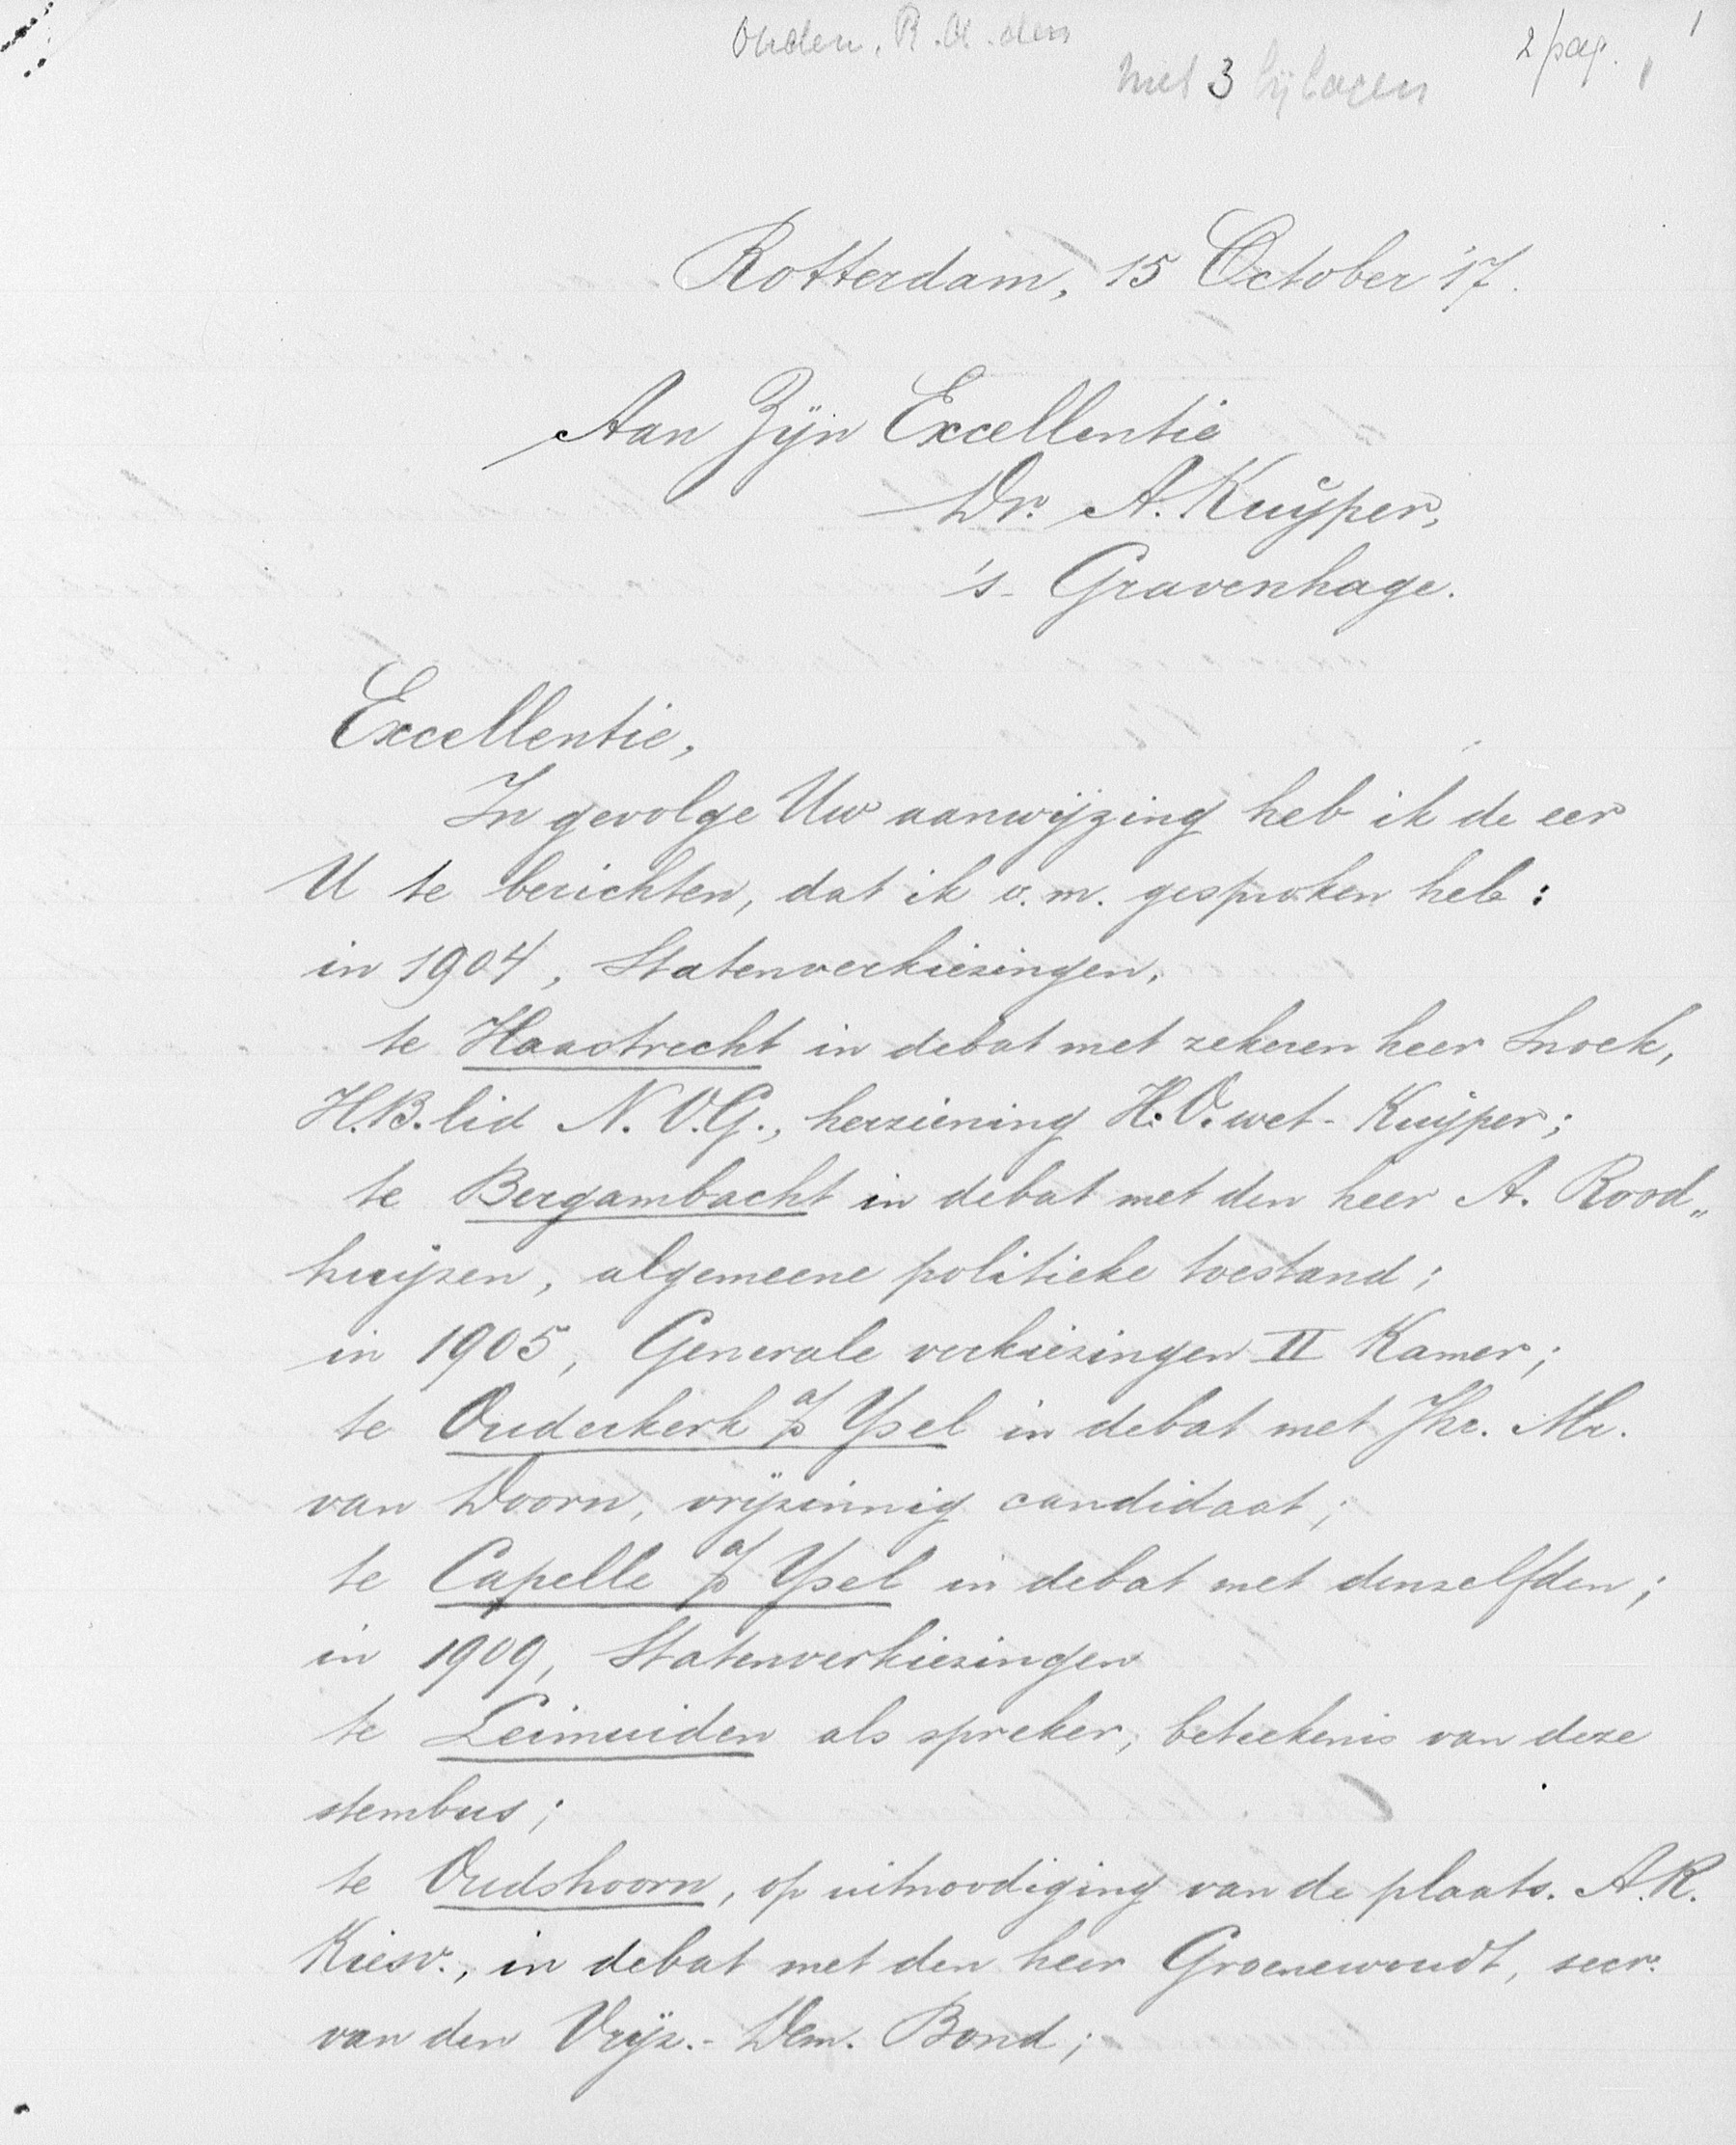 Ouden. R. A. den
2 pag. 1
Met 3 bijlagen
Rotterdam, 15 October '17.
Aan Zijn Excellentie
Dr. A. Kuijper,
's-Gravenhage.
Excellentie,
In gevolge Uw aanwijzing heb ik de eer
U te berichten, dat ik o.m. gesproken heb:
in 1904, Statenverkiezingen,
te Haastrecht in debat met zekeren heer Snoek,
H.B. lid N.O.G., herziening H.O. wet-Kuijper;
te Bergambacht in debat met den heer A. Rood„
huijzen, algemeene politieke toestand;
in 1905, Generale verkiezingen II Kamer;
te Ouderkerk a/d Ysel in debat met Jhr. Mr.
van Doorn, vrijzinnig candidaat;
te Capelle a/d Ysel in debat met denzelfden;
in 1909, Statenverkiezingen
te Leimuiden als spreker, beteekenis van deze
stembus;
te Oudshoorn, op uitnoodiging van de plaats. A.R.
Kiesv., in debat met den heer Groenewoudt, secr.
van den Vrijz.-Dem. Bond;